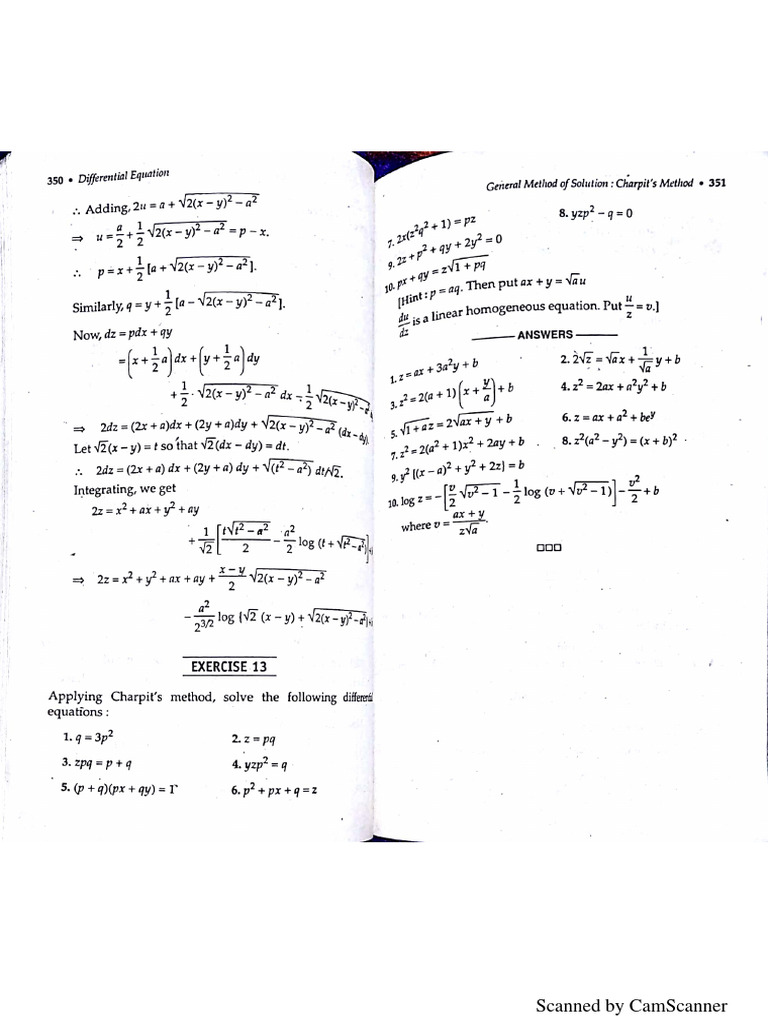 350 • Differential Equation
∴ Adding, 2u = a + √2(x − y)² − a²
⇒ u = a/2 + 1/2 √2(x − y)² − a² = p − x.
∴ p = x + 1/2 [a + √2(x − y)² − a²].
Similarly, q = y + 1/2 [a − √2(x − y)² − a²].
Now, dz = pdx + qy
= (x + 1/2 a) dx + (y + 1/2 a) dy
+ 1/2 · √2(x − y)² − a² dx − 1/2 √2(x − y)²
⇒ 2dz = (2x + a)dx + (2y + a)dy + √2(x − y)² − a² (dx − dy).
Let √2(x − y) = t so that √2(dx − dy) = dt.
∴ 2dz = (2x + a) dx + (2y + a) dy + √(t² − a²) dt/√2.
Integrating, we get
2z = x² + ax + y² + ay
+ 1/√2 [t√t² − a²/2 − a²/2 log (t + √t² − a²)]
⇒ 2z = x² + y² + ax + ay + x − y/2 √2(x − y)² − a²
− a²/2^3/2 log {√2 (x − y) + √2(x − y)² − a²}
EXERCISE 13
Applying Charpit's method, solve the following
equations :
1. q = 3p² 2. z = pq
3. zpq = p + q 4. yzp² = q
5. (p + q)(px + qy) = 1 6. p² + px + q = z
General Method of Solution : Charpit's Method • 351
7. 2x(z²q² + 1) = pz 8. yzp² − q = 0
9. 2z + p² + qy + 2y² = 0
10. px + qy = z√1 + pq
[Hint : p = aq. Then put ax + y = √a u
du/dz is a linear homogeneous equation. Put u/z = v.]
ANSWERS
1. z = ax + 3a²y + b 2. 2√z = √ax + 1/√a y + b
3. z² = 2(a + 1)(x + y/a) + b 4. z² = 2ax + a²y² + b
5. √1 + az = 2√ax + y + b 6. z = ax + a² + beʸ
7. z² = 2(a² + 1)x² + 2ay + b 8. z²(a² − y²) = (x + b)²
9. y² [(x − a)² + y² + 2z] = b
10. log z = −[v/2 √v² − 1 − 1/2 log (v + √v² − 1)] − v²/2 + b
where v = ax + y/z√a.
Scanned by CamScanner